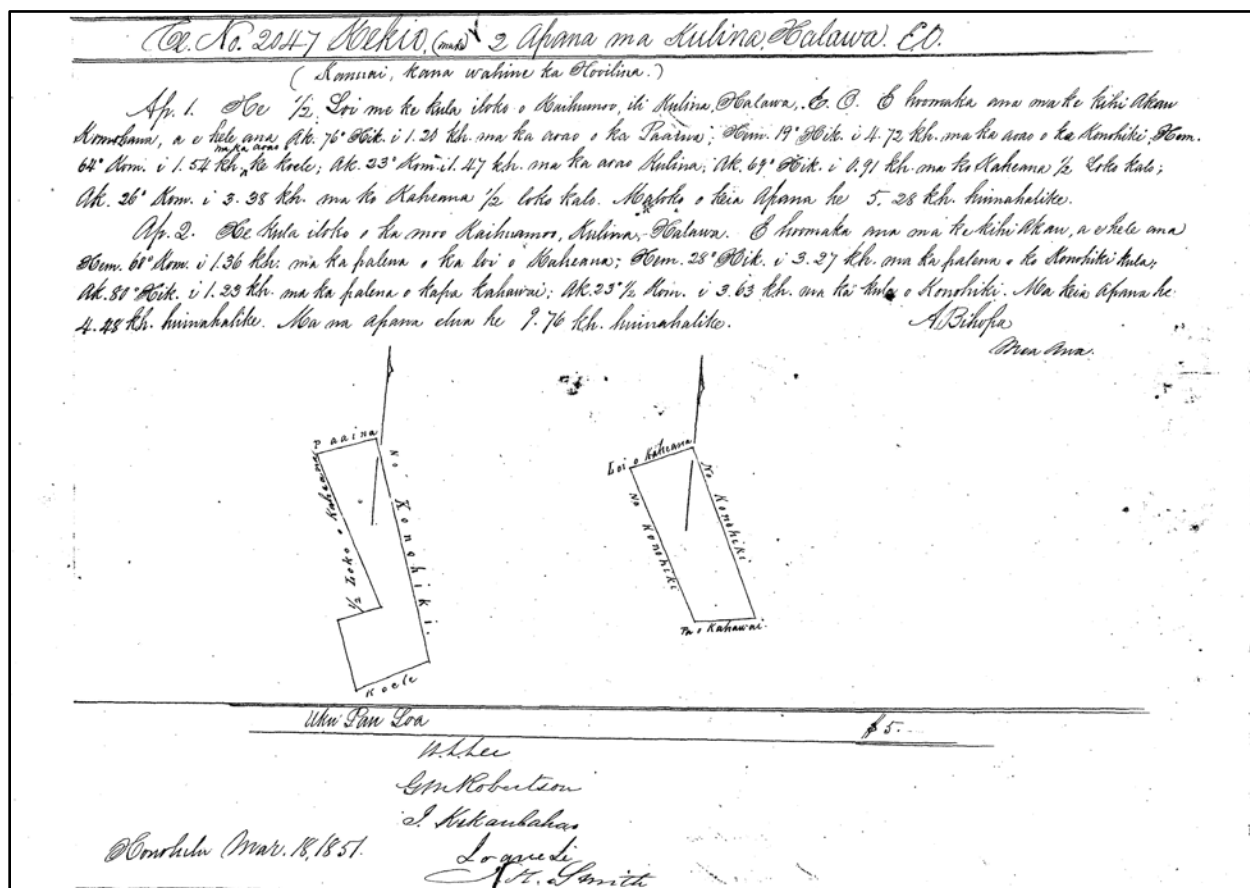 Cl. No. 2047 Kekio, (make) 2 Apana ma Kulina, Halawa. E.O.
( Kamuai, kana wahine ka Hooilina. )
Ap. 1. He 1/2 Loi me ke kula iloko o Kaihumoo, ili Kulina, Halawa, E. O. E hoomaka ana ma ke kihi Akau
Komohana, a e hele ana Ak. 76° Hik. i 1.20 kh. ma ka aoao o ka Paaina; Hem. 19° Hik. i 4.72 kh. ma ka aoao o ka Konohiki, Hem.
64° Kom. i 1.54 kh. ma ka aoao ke koele; Ak. 23° Kom. i 1.47 kh. ma ka aoao Kulina; Ak. 69° Hik. i 0.91 kh. ma ko Kaheana 1/2 Loko kalo;
Ak. 26° Kom. i 3.38 kh. ma ko Kaheana 1/2 loko kalo. Maloko o keia Apana he 5.28 kh. huinahalike.
Ap. 2. He kula iloko o ka moo Kaihuamoo, Kulina, Halawa. E hoomaka ana ma ke kihi Akau, a e hele ana
Hem. 60° Kom. i 1.36 kh. ma ka palena o ka loi o Kaheana; Hem. 28° Hik. i 3.27 kh. ma ka palena o ko Konohiki kula;
Ak. 80° Hik. i 1.23 kh. ma ka palena o kapa kahawai; Ak. 23° 1/2 Kom. i 3.63 kh. ma ka kula o Konohiki. Ma keia apana he
4.48 kh. huinahalike. Ma na apana elua he 9.76 kh. huinahalike.
A Bihopa
Mea Ana.
Paaina
No Konohiki.
1/2 Loko o Kaheana
Koele
Loi o Kaheana
No Konohiki
No Konohiki
Pa o Kahawai.
Uku Pau Loa $5.
W. L. Lee
G M Robertson
J. Kekaulahao
Ioane Ii
J. H. Smith
Honolulu Mar. 18, 1851.